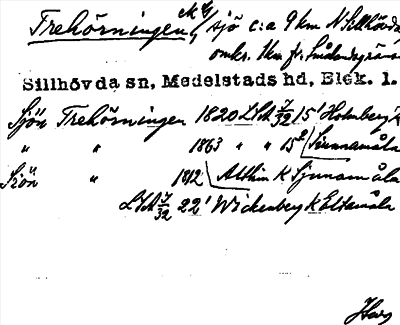 Trehörningen, sjö c:a 9 km N Sillhövda
omkr. 1 km fr. Smålandsgräns
Sillhövda sn, Medelstads hd, Blek. l.
Sjön Trehörningen 1820 LSA 7/32 15' Holmberg k
" " 1863 " " 15² Sunnamåla
Sjön " 1812 Althin K Sjunamåla
LSA 7/32 22' Wickenberg k Eltamåla